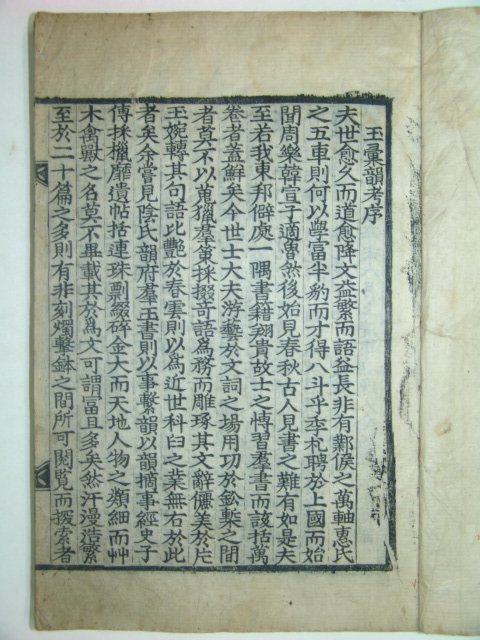 玉彙韻考序
夫世愈久而道愈降文益繁而語益長非有鄴侯之萬軸惠氏
之五車則何以學富半豹而才得八斗乎季札聘於上國而始
聞周樂韓宣子適魯然後始見春秋古人見書之難有如是夫
至若我東邦僻處一隅書籍翔貴故士之愽習羣書而該括萬
卷者蓋鮮矣今世士大夫游藝於文詞之場用功於鈆槧之間
者莫不以蒐獵羣策採掇奇語爲務而雕琢其文辭儷美於片
玉婉轉其句語比艷於春雲則以爲近世科臼之業無右於此
者矣余嘗見陰氏韻府羣玉書則以事繫韻以韻摘事經史子
傳採獵靡遺帖括連珠剽綴碎金大而天地人物之類細而艸
木禽獸之名莫不畢載其於爲文可謂富且多矣然汗漫浩繁
至於二十篇之多則有非刻燭擊鉢之間所可閱覽而搜索者